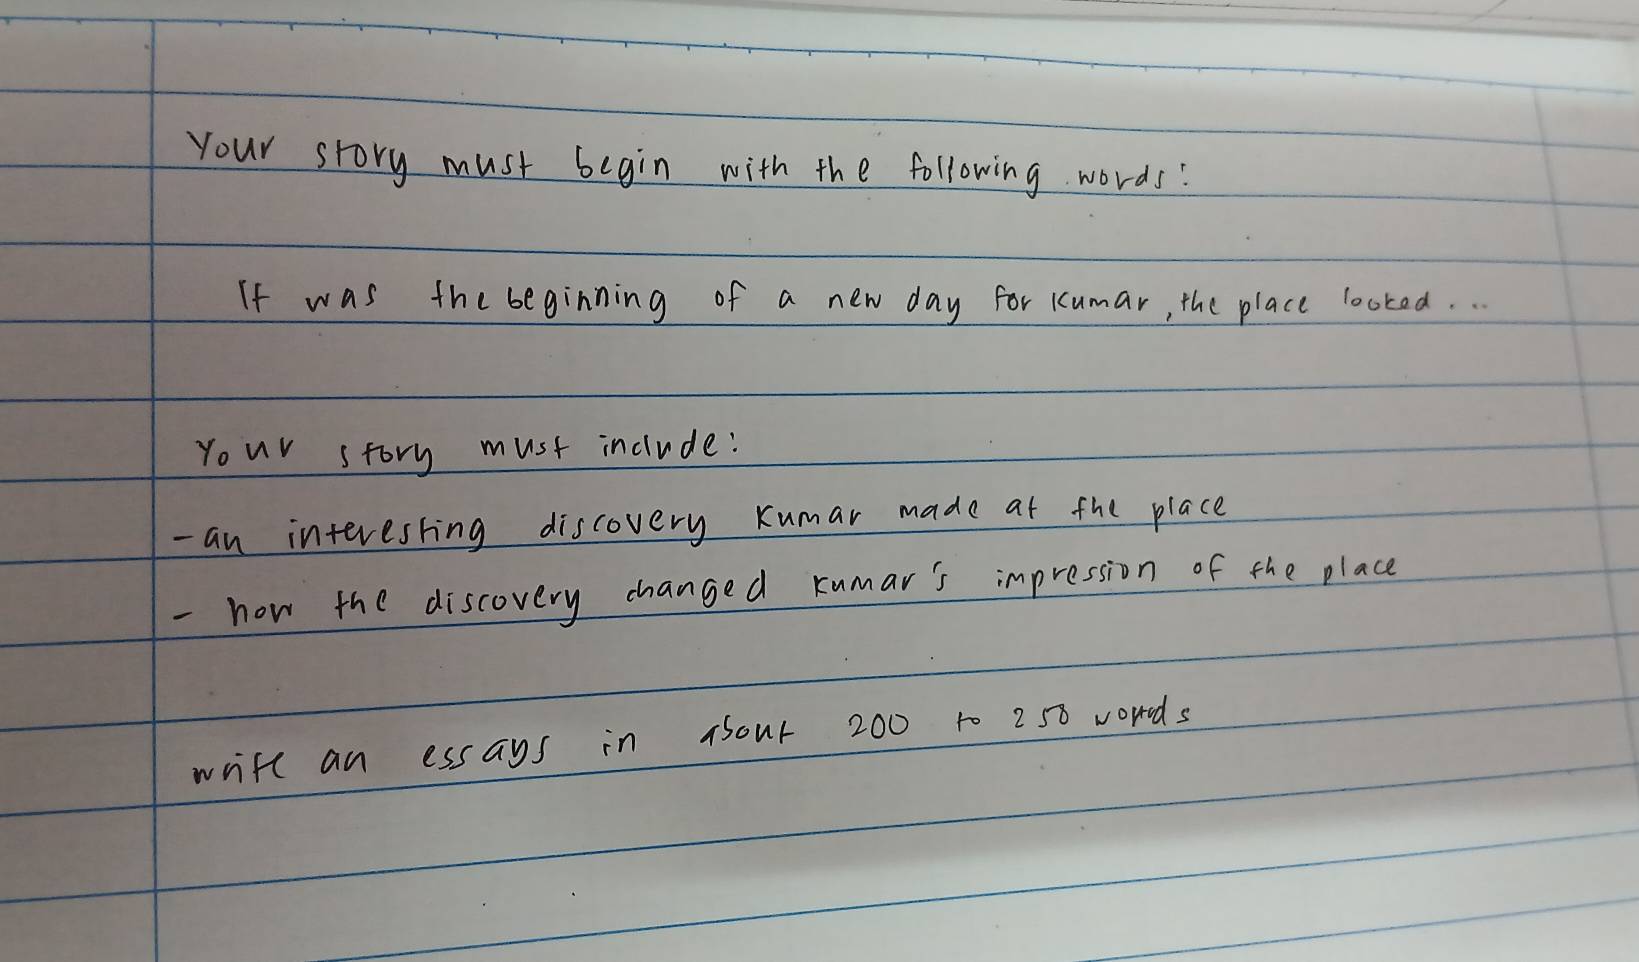 Your story must begin with the following words:
It was the beginning of a new day for Kumar, the place looked...
Your story must include:
- an interesting discovery Kumar made at the place
- how the discovery changed Kumar's impression of the place
write an essays in about 200 to 250 words